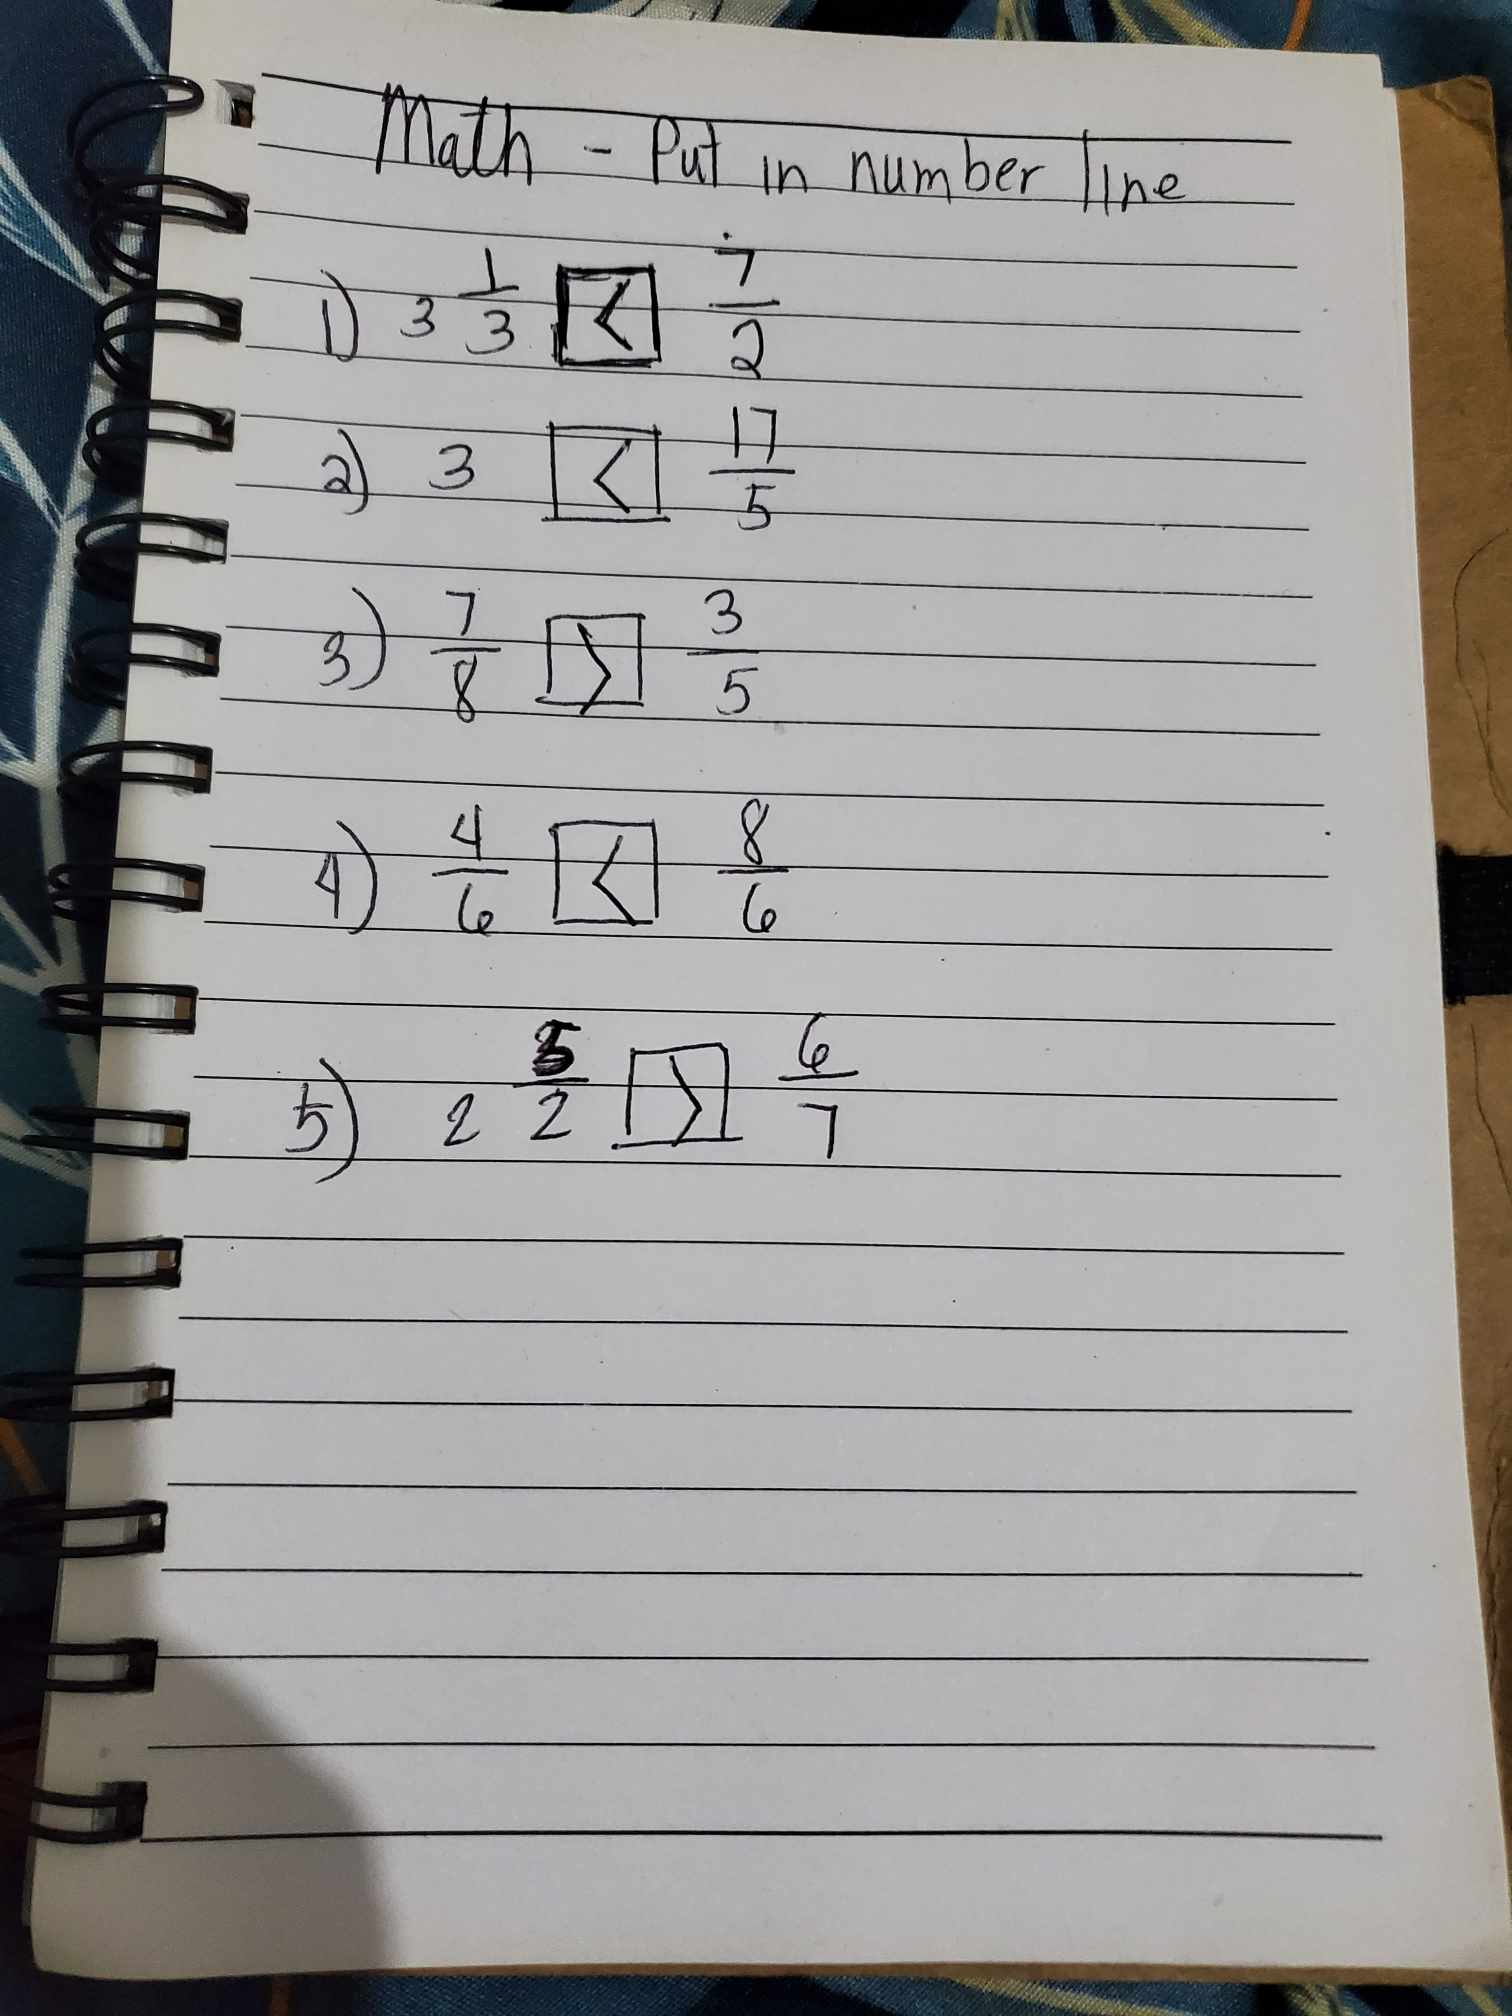 Math - Put in number line
1) 3 1/3 < 7/2
2) 3 < 17/5
3) 7/8 > 3/5
4) 4/6 < 8/6
5) 2 5/2 > 6/7